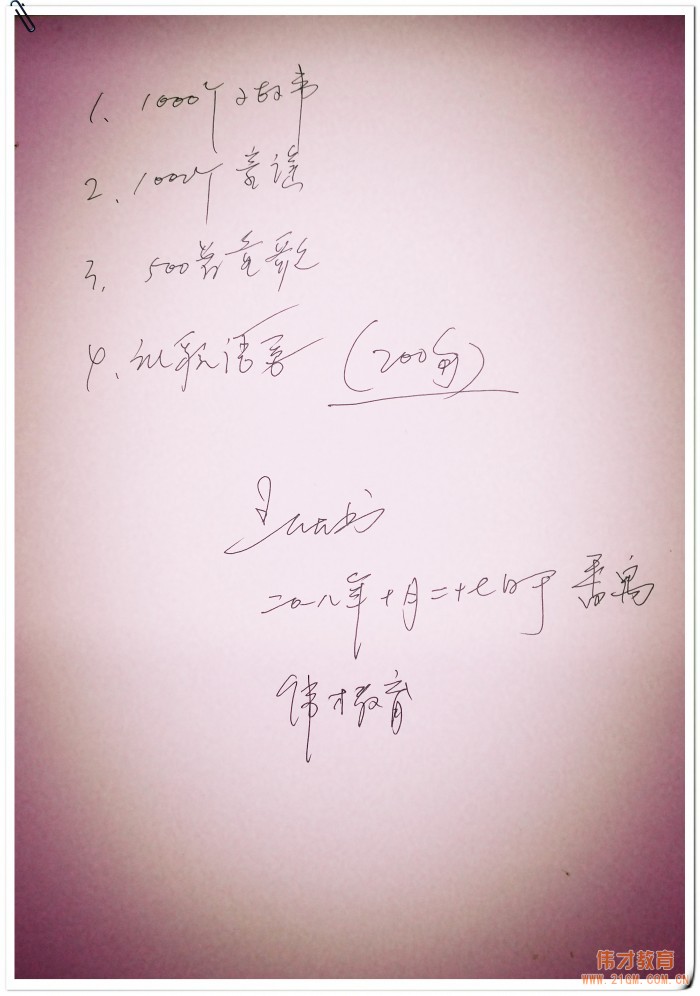 1. 1000个故事
2. 1000个童谣
3. 500首童歌
4. 语言 (200句)
二〇一八年十月二十七日于 番禺
伟才教育
伟才教育
WWW.21GM.COM.CN